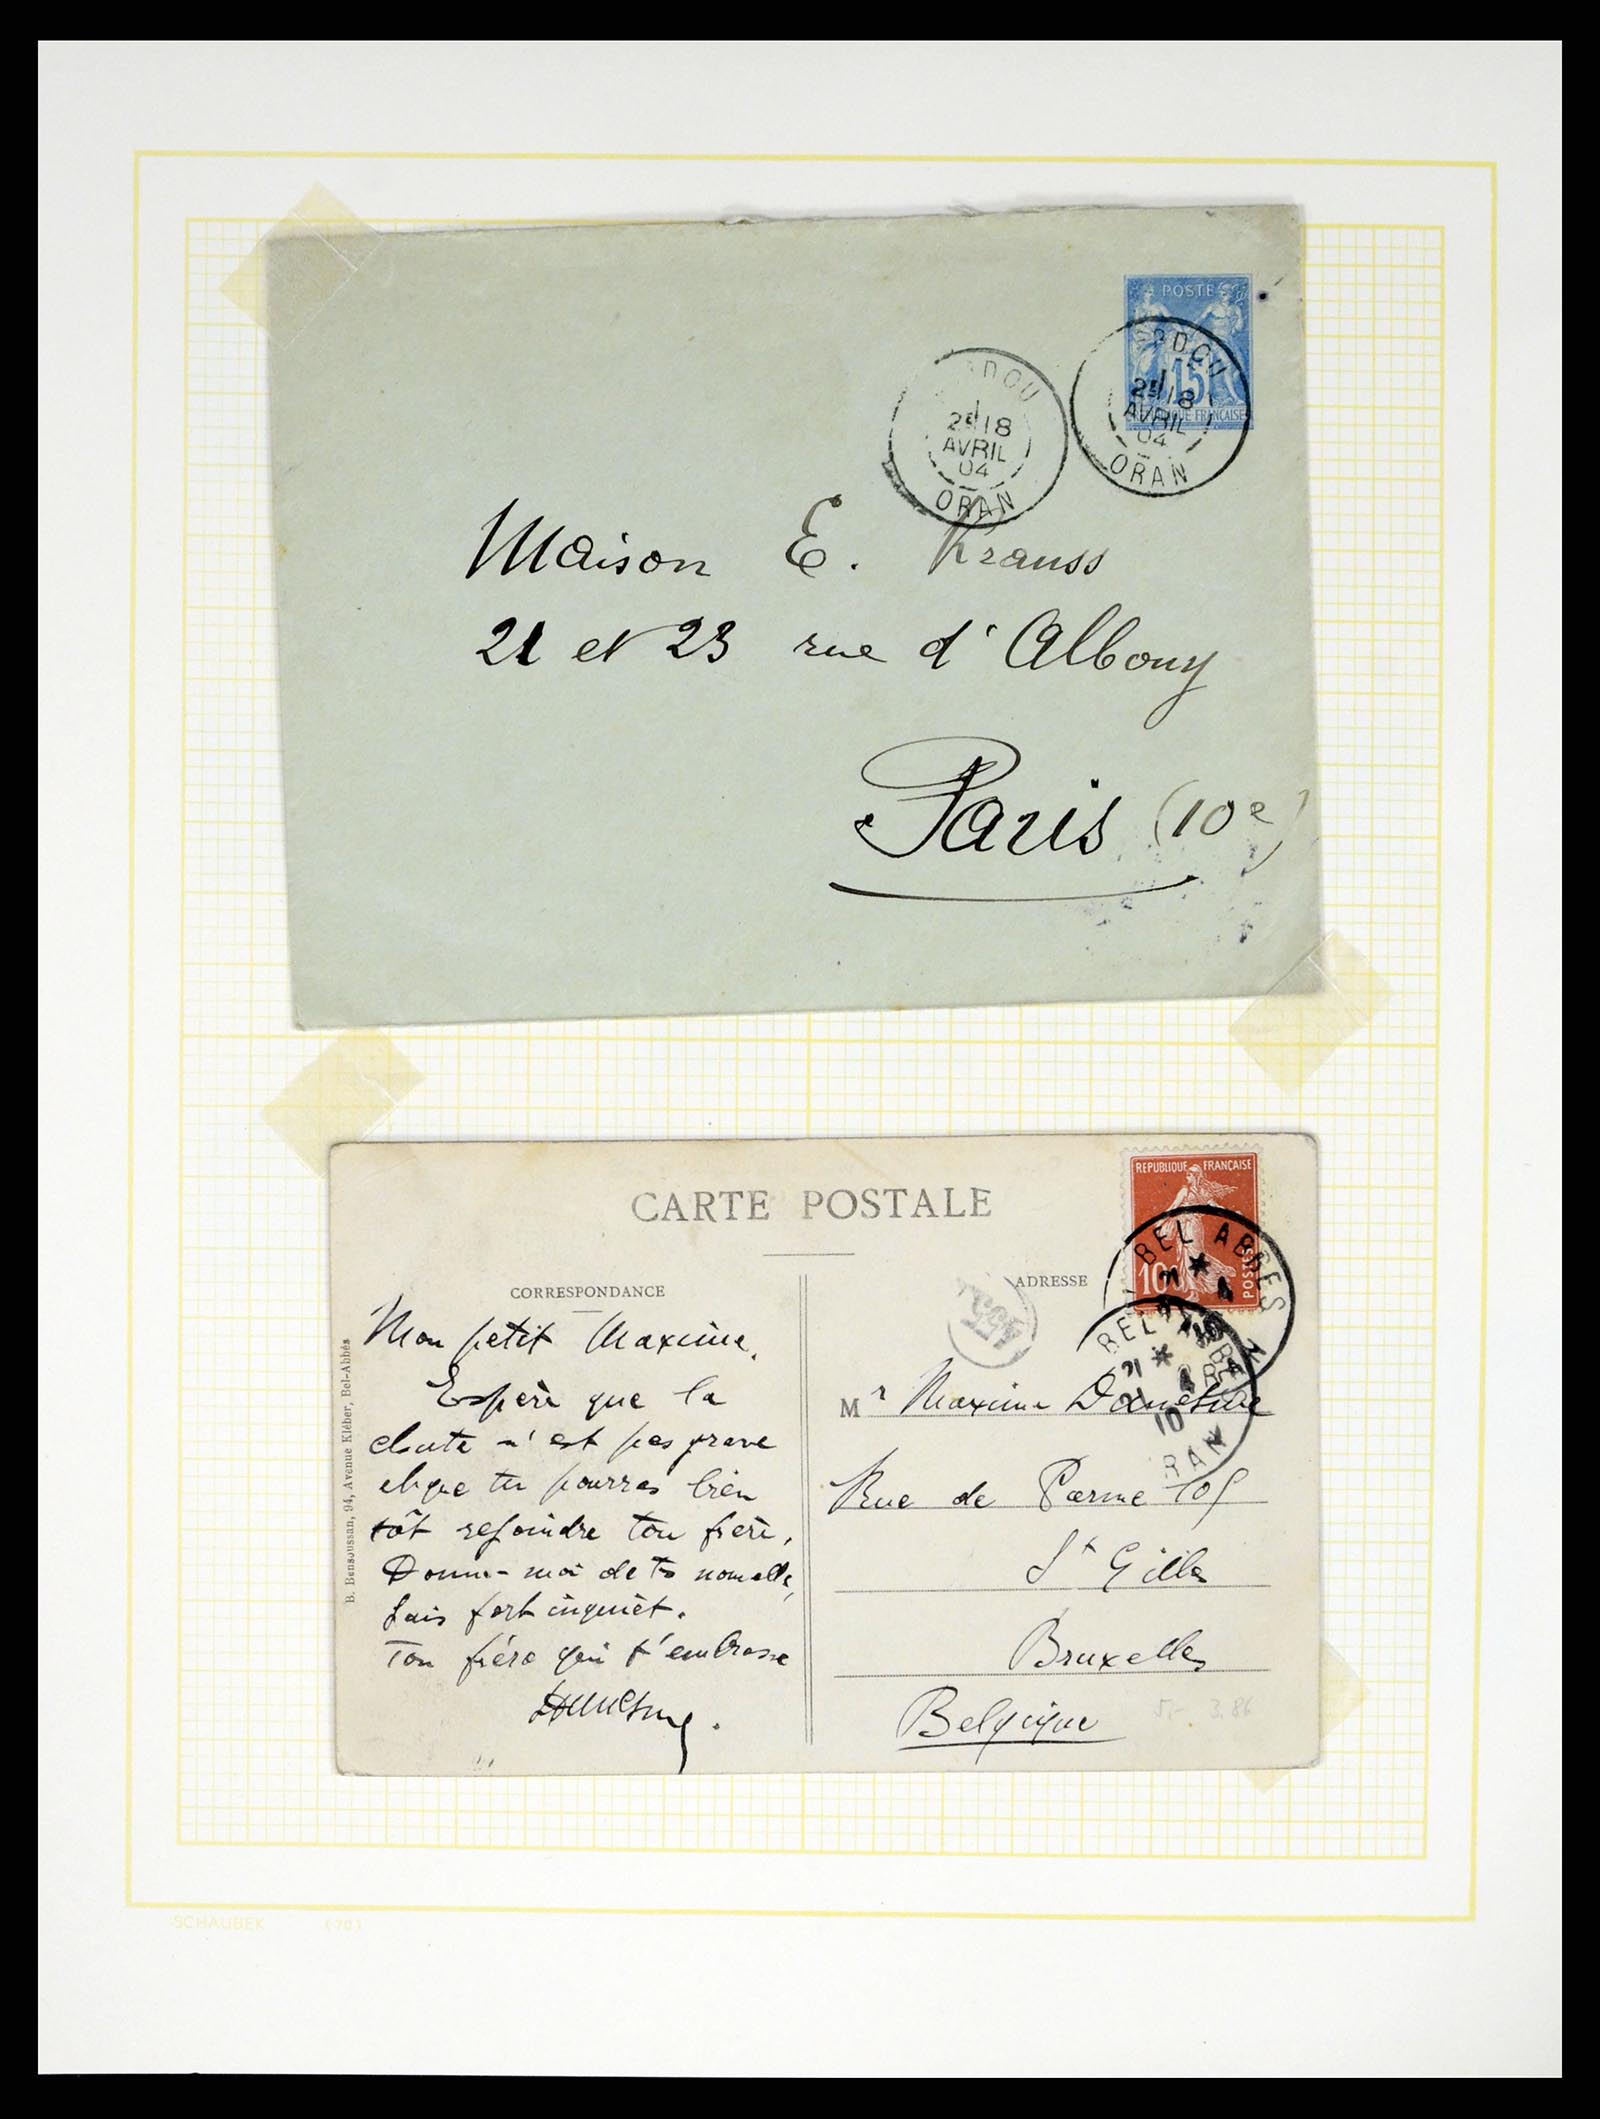 POSTE
15
RÉPUBLIQUE FRANÇAISE
DOU
2E/18
AVRIL
04
ORAN
RDOU
2E/18
AVRIL
04
ORAN
Maison E. Krauss
21 et 23 rue d'Albouy
Paris (10e)
CARTE POSTALE
REPUBLIQUE FRANÇAISE
10c
POSTES
BEL ABBES
21 4
10
ORAN
BEL ABBES
21 4
10
RAN
CORRESPONDANCE
ADRESSE
Mon petit Maxime,
Espère que la
chute n'est pas grave
et que tu pourras bien
tôt rejoindre ton frère.
Donne-moi de tes nouvelles,
suis fort inquiet.
Ton frère qui t'embrasse
B. Bensoussan, 94, Avenue Kléber, Bel-Abbès
Mr Maxime
Rue de Parme 105
St Gilles
Bruxelles
Belgique
5.- 3.86
SCHAUBEK (70)